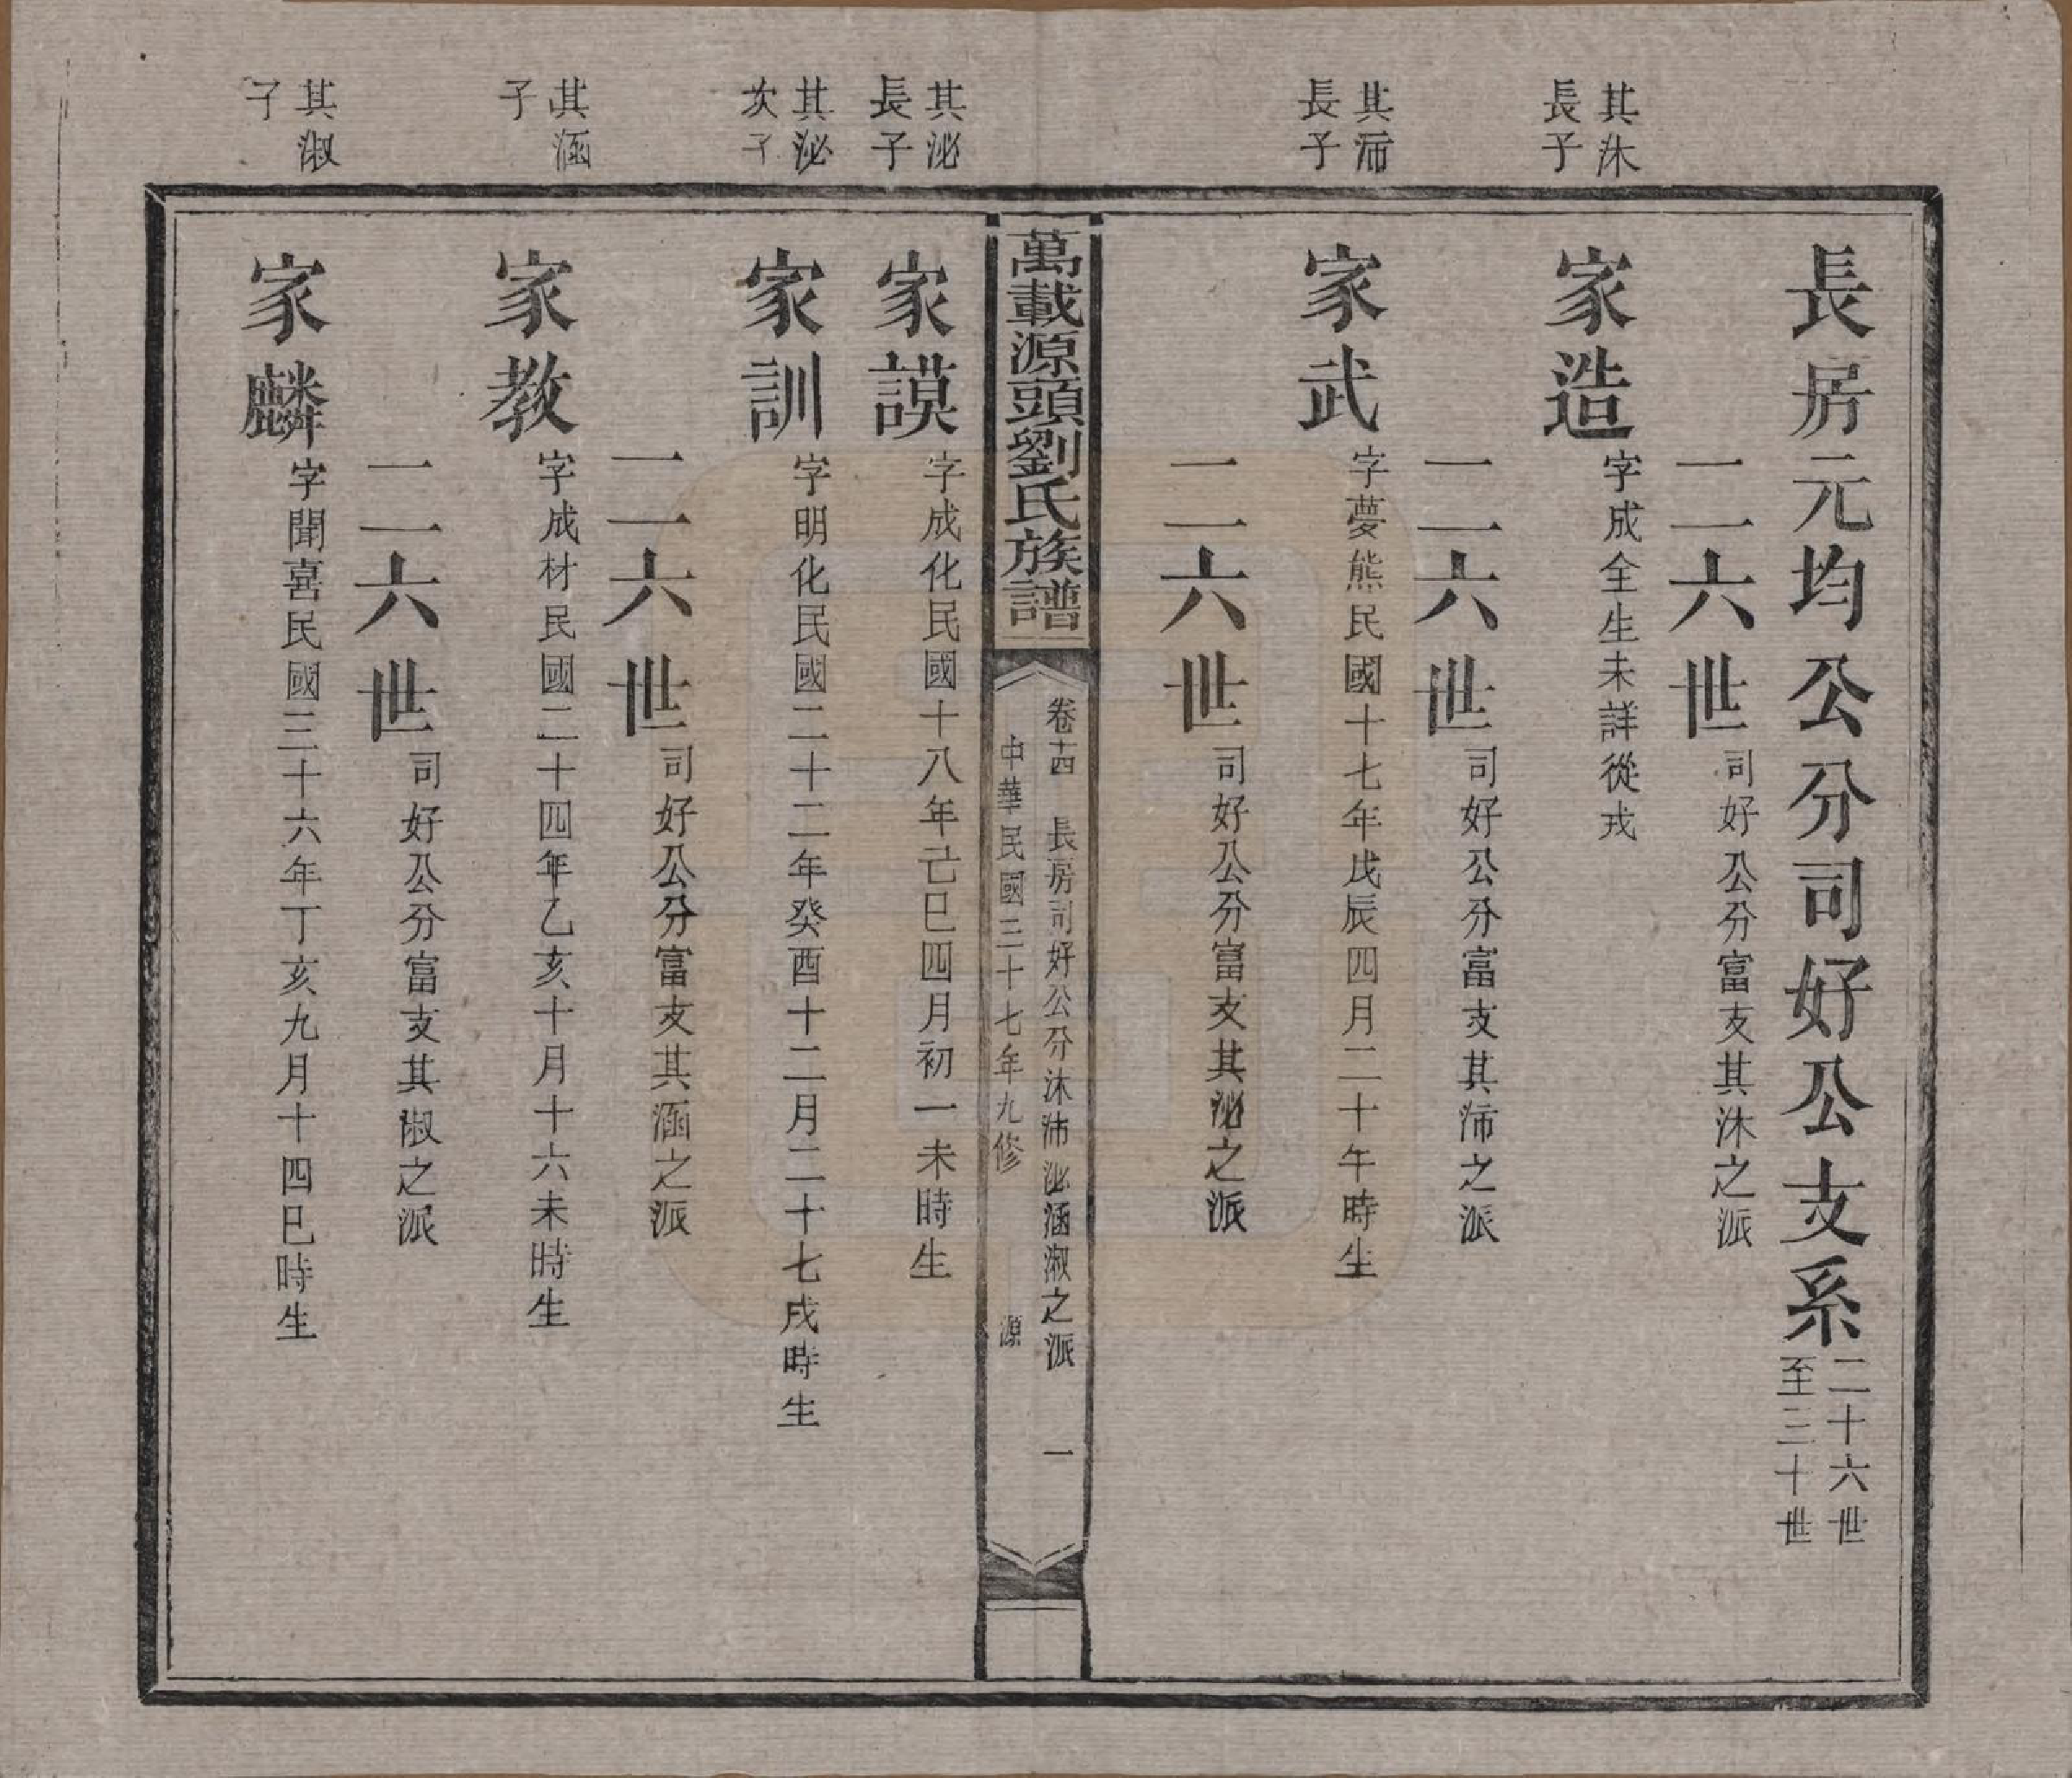 長房元均公分司好公支系 二十六世至三十世
二六世 司好公分富支其沐之派
其沐長子
家造 字成全生未詳從戎
二六世 司好公分富支其沛之派
其沛長子
家武 字夢熊民國十七年戊辰四月二十午時生
二六世 司好公分富支其泌之派
萬載源頭劉氏族譜
卷十四 長房司好公分沐沛泌涵淑之派 一
中華民國三十七年九修 源
其泌長子
家謨 字成化民國十八年亡巳四月初一未時生
其泌次子
家訓 字明化民國二十二年癸酉十二月二十七戌時生
二六世 司好公分富支其涵之派
其涵子
家教 字成材民國二十四年乙亥十月十六未時生
二六世 司好公分富支其淑之派
其淑子
家麟 字聞喜民國三十六年丁亥九月十四巳時生